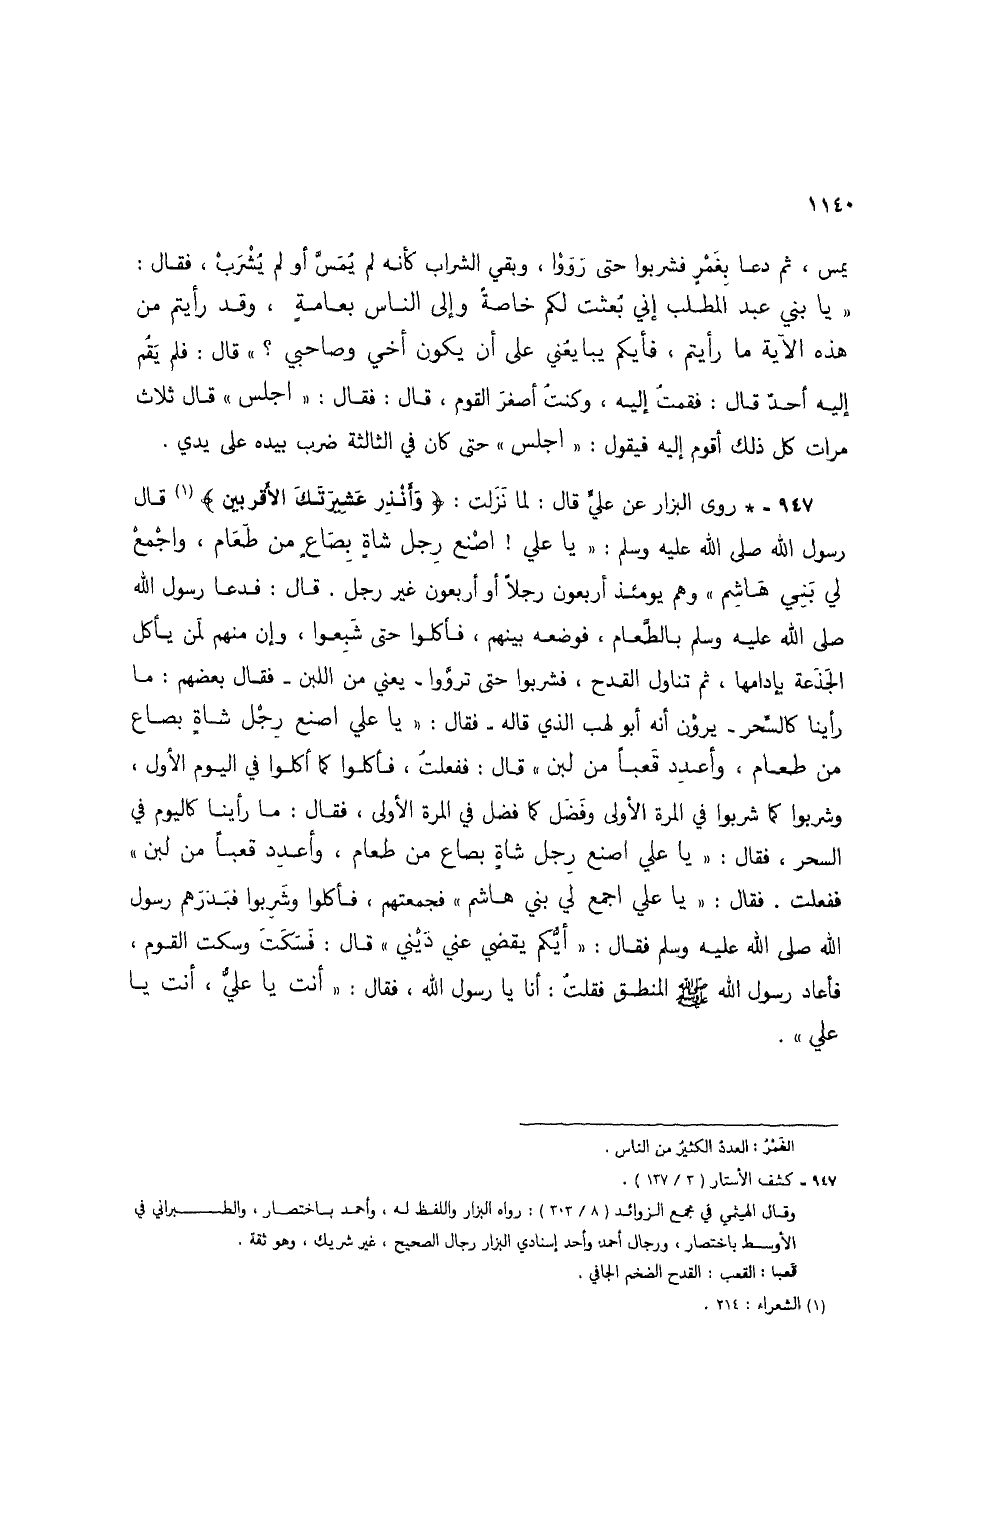 ١١٤٠
يمس ، ثم دعـا بِغَمْرٍ فشربوا حتى رَوَوْا ، وبقي الشراب كأنـه لم يُمَسَّ أو لم يُشْرَبْ ، فقـال :
« يـا بني عبـد المطـلب إني بُعثت لكم خـاصـةً وإلى النـاس بعـامـةٍ ، وقـد رأيتم من
هذه الآية ما رأيتم ، فأيكم يبايعُني على أن يكون أخي وصاحبي ؟ » قال : فلم يَقُم
إليـه أحـدٌ قـال : فقمتُ إليـه ، وكنتُ أصغرَ القوم ، قـال : فقـال : « اجلس » قـال ثلاث
مرات كل ذلك أقوم إليه فيقول : « اجلس » حتى كان في الثالثة ضرب بيده على يدي .
٩٤٧ - * روى البزار عن عليٍّ قال : لما نَزَلت : ﴿ وَأَنْذِر عَشِيرَتَـكَ الأَقْرَبين ﴾ (١) قـال
رسول الله صلى الله عليه وسلم : « يا علي ! اصْنع رِجل شاةٍ بِصَاعٍ من طَعَام ، واجْمعْ
لي بَنِي هَـاشِم » وهم يومئـذ أربعون رجلاً أو أربعون غير رجل . قـال : فـدعـا رسول الله
صلى الله عليـه وسلم بـالطَّعـام ، فوضعـه بينهم ، فـأكلـوا حتى شَبِعـوا ، وإن منهم لَمن يـأكل
الجَذَعة بإدامها ، ثم تناول القـدح ، فشربوا حتى تروَّوا - يعني من اللبن - فقـال بعضهم : مـا
رأينا كالسِّحر - يروْن أنه أبو لهب الذي قاله - فقال : « يـا علي اصنع رِجْل شـاةٍ بصـاع
من طعـام ، وأعـدِد قَعبـاً من لبن » قـال : ففعلتُ ، فـأكلـوا كما أكلـوا في اليـوم الأول ،
وشربوا كما شربوا في المرة الأولى وفَضَل كما فضل في المرة الأولى ، فقـال : مـا رأينـا كاليوم في
السحر ، فقال : « يـا علي اصنع رِجل شاةٍ بصاع من طعام ، وأعـدِد قعبـاً من لبن »
ففعلت . فقال : « يـا علي اجمع لي بني هـاشم » فجمعتهم ، فـأكلوا وشَرِبوا فبَـدَرَهم رسول
الله صلى الله عليـه وسلم فقـال : « أيُّكم يقضي عني دَيْني » قـال : فَسَكَتَ وسكت القـوم ،
فأعاد رسول الله ﷺ المنطـق فقلتُ : أنا يا رسول الله ، فقال : « أنت يا عليُّ ، أنت يـا
علي » .
الغَمْرُ : العددُ الكثيرُ من الناس .
٩٤٧ - كشف الأستار ( ٣ / ١٣٧ ) .
وقـال الهيثمي في مجمع الـزوائـد ( ٨ / ٣٠٢ ) : رواه البزار واللفـظ لـه ، وأحمـد بـاختصـار ، والطـبراني في
الأوسـط باختصار ، ورجال أحمد وأحد إسنادي البزار رجال الصحيح ، غير شريك ، وهو ثقة .
قَعبا : القعب : القدح الضخم الجافي .
(١) الشعراء : ٢١٤ .